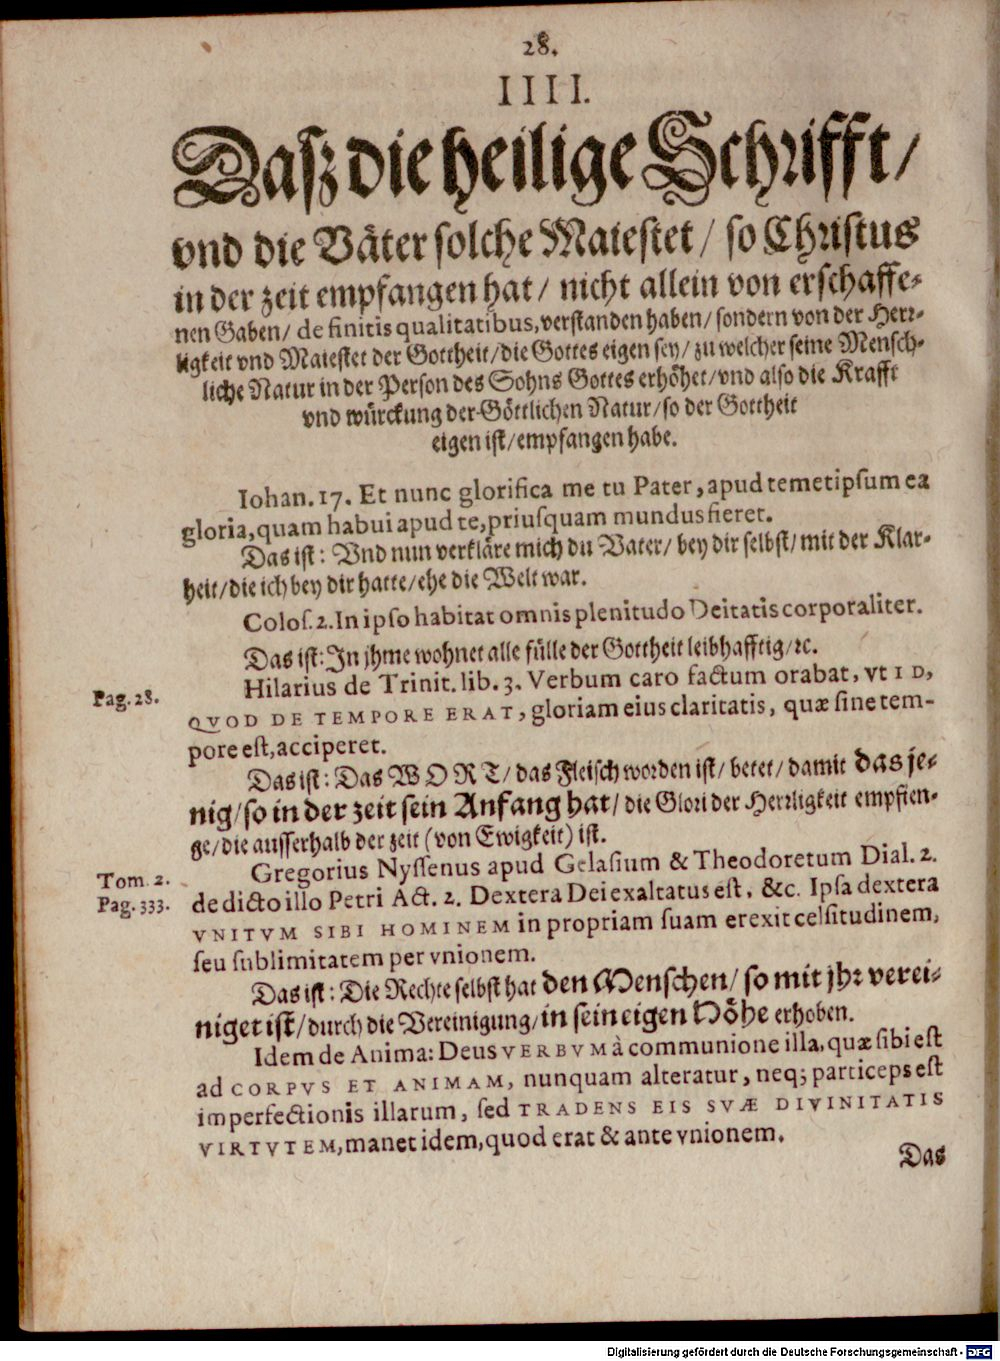 28.
IIII.
Dasz die heilige Schrifft/
vnd die Väter solche Maiestet/ so Christus
in der zeit empfangen hat/ nicht allein von erschaffe-
nen Gaben/ de finitis qualitatibus, verstanden haben/ sondern von der Herr-
ligkeit vnd Maiestet der Gottheit/ die Gottes eigen sey/ zu welcher seine Mensch-
liche Natur in der Person des Sohns Gottes erhöhet/ vnd also die Krafft
vnd würckung der Göttlichen Natur/ so der Gottheit
eigen ist/ empfangen habe.
Iohan. 17. Et nunc glorifica me tu Pater, apud temetipsum ea
gloria, quam habui apud te, priusquam mundus fieret.
Das ist: Vnd nun verkläre mich du Vater/ bey dir selbst/ mit der Klar-
heit/ die ich bey dir hatte/ ehe die Welt war.
Colos. 2. In ipso habitat omnis plenitudo Deitatis corporaliter.
Das ist: In jhme wohnet alle fülle der Gottheit leibhafftig/ ꝛc.
Pag. 28. Hilarius de Trinit. lib. 3. Verbum caro factum orabat, vt ID,
QVOD DE TEMPORE ERAT, gloriam eius claritatis, quæ sine tem-
pore est, acciperet.
Das ist: Das WORT/ das Fleisch worden ist/ betet/ damit das je-
nig/ so in der zeit sein Anfang hat/ die Glori der Herrligkeit empfien-
ge/ die ausserhalb der zeit (von Ewigkeit) ist.
Tom. 2. Gregorius Nyssenus apud Gelasium & Theodoretum Dial. 2.
Pag. 333. de dicto illo Petri Act. 2. Dextera Dei exaltatus est, &c. Ipsa dextera
VNITVM SIBI HOMINEM in propriam suam erexit celsitudinem,
seu sublimitatem per vnionem.
Das ist: Die Rechte selbst hat den Menschen/ so mit jhr verei-
niget ist/ durch die Vereinigung/ in sein eigen Höhe erhoben.
Idem de Anima: Deus VERBVM à communione illa, quæ sibi est
ad CORPVS ET ANIMAM, nunquam alteratur, neq; particeps est
imperfectionis illarum, sed TRADENS EIS SVÆ DIVINITATIS
VIRTVTEM, manet idem, quod erat & ante vnionem.
Das
Digitalisierung gefördert durch die Deutsche Forschungsgemeinschaft - DFG